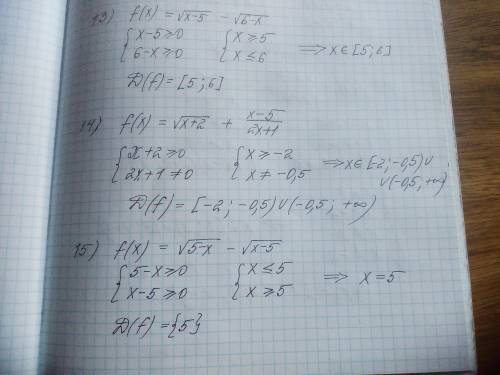 13) f(x) = √x-5 - √6-x
{x-5≥0 {x≥5
6-x≥0 x≤6 ⟹ x∈[5;6]
D(f)=[5;6]
14) f(x) = √x+2 + (x-5)/(2x+1)
{x+2≥0 {x≥-2 ⟹ x∈[-2;-0,5)∪
2x+1≠0 x≠-0,5 ∪(-0,5;+∞)
D(f)=[-2;-0,5)∪(-0,5;+∞)
15) f(x) = √5-x - √x-5
{5-x≥0 {x≤5 ⟹ x=5
x-5≥0 x≥5
D(f)={5}